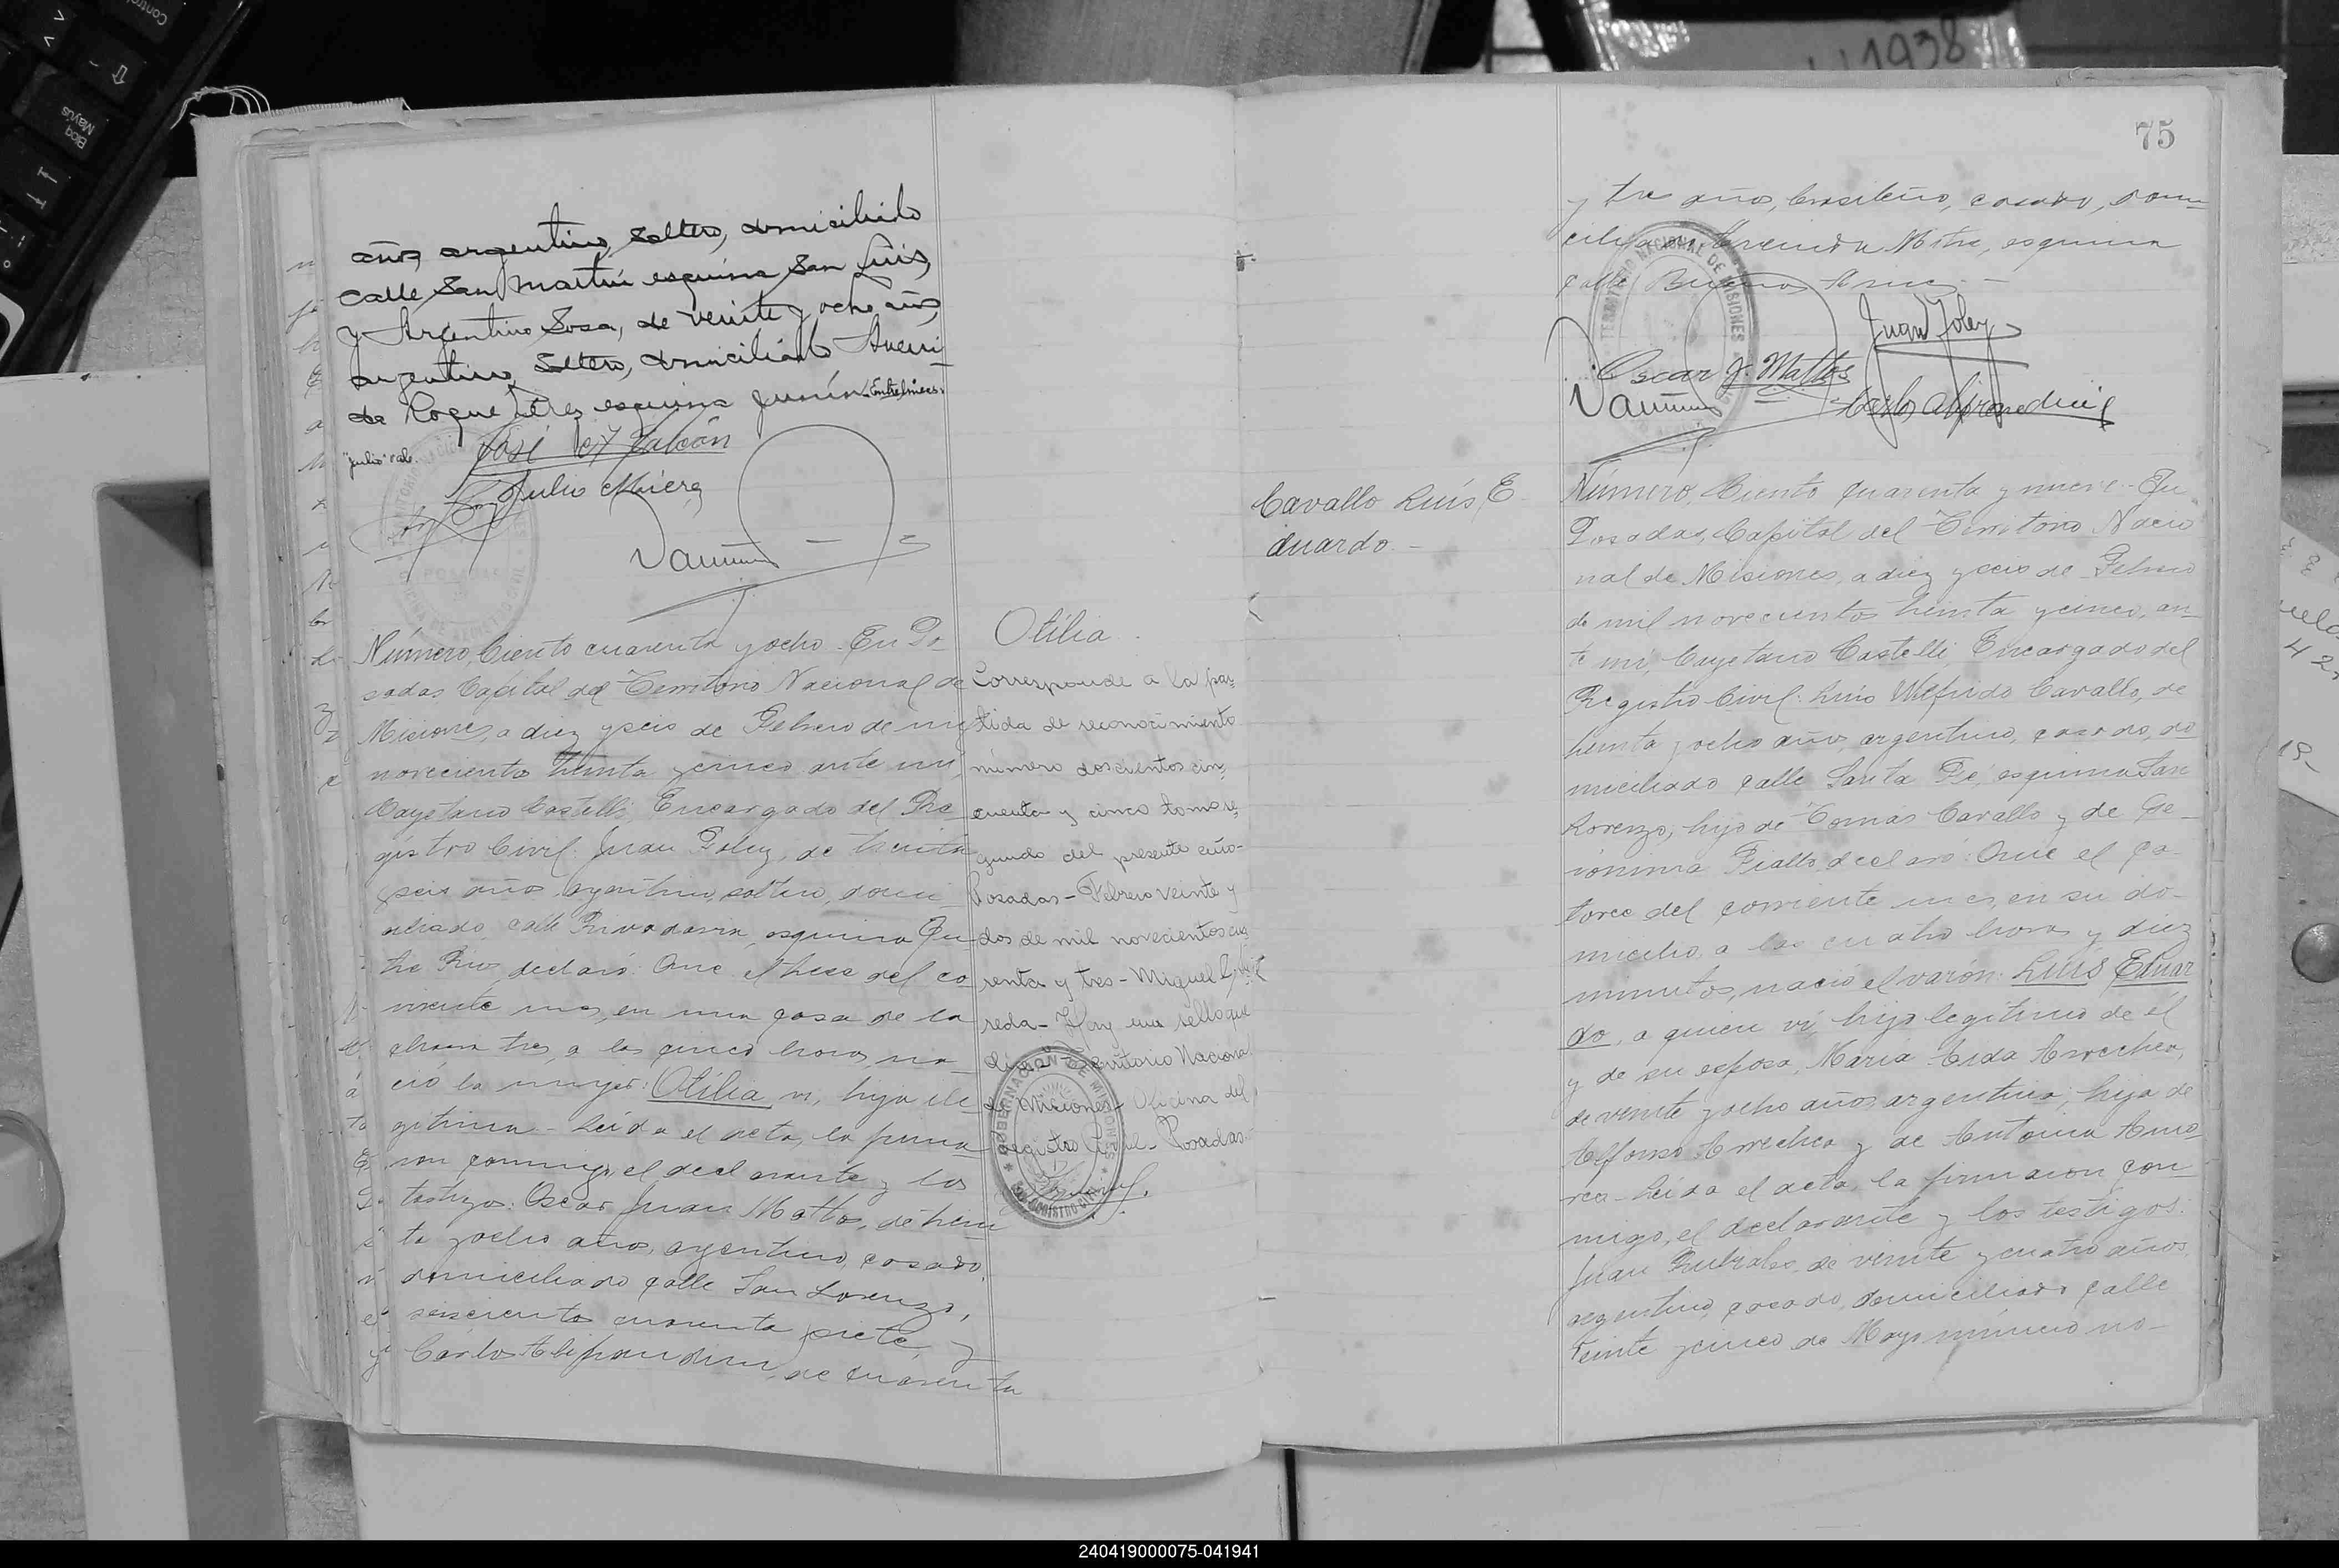 años, argentino, soltero, domiciliado
calle San Martín esquina San Luis,
y Argentino Sosa, de veinte y ocho años,
argentino, soltero, domiciliado Aveni
da Roque Perez esquina Junín. Entrelíneas:
"julio" vale.
José Falcón
Julio
Número, Ciento cuarenta y ocho. En Po
sadas Capital del Territorio Nacional de
Misiones, a diez y seis de Febrero de mil
novecientos treinta y cinco ante mí,
Cayetano Castelli, Encargado del Re
gistro Civil: Juan Foley, de treinta
y seis años, argentino, soltero, domi
ciliado calle Rivadavia, esquina En
tre Rios, declaró: Que el trece del co
rriente mes, en una casa de la
chacra tres, a las cinco horas, na
ció la mujer: Otilia vi, hija ile
gítima - Leída el acta, la firma
ron conmigo, el declarante y los
testigos: Oscar Juan Mattos, de trein
ta y ocho años, argentino, casado,
domiciliado calle San Lorenzo,
seiscientos cuarenta siete, y
Carlos de cuarenta
Otilia
Corresponde a la par
tida de reconocimiento
número doscientos cin
cuenta y cinco tomo se
gundo del presente año-
Posadas - Febrero veinte y
dos de mil novecientos cua
renta y tres - Miguel
reda - Hay un sello que
dice: Territorio Nacional
de Misiones - Oficina del
Registro Civil - Posadas.-
GOBERNACION DE MISIONES
REGISTRO CIVIL
75
y tres años, brasileño, casado, domi
ciliado Avenida Mitre, esquina
calle Buenos Aires. -
TERRITORIO NACIONAL DE MISIONES
Juan Foley
Oscar J. Mattos
Carlos
Cavallo Luís E
duardo. -
Número, Ciento cuarenta y nueve - En
Posadas, Capital del Territorio Nacio
nal de Misiones, a diez y seis de Febrero
de mil novecientos treinta y cinco, an
te mí, Cayetano Castelli, Encargado del
Registro Civil: Luis Wilfrido Cavallo, de
treinta y ocho años, argentino, casado, do
miciliado calle Santa Fé, esquina San
Lorenzo, hijo de Tomas Cavallo y de Ge
rónima Rialto declaró: Que el ca
torce del corriente mes, en su do-
micilio, a las cuatro horas y diez
minutos, nació el varón: Luís Eduar
do, a quien ví, hijo legítimo de él
y de su esposa, María Aida Arrechea,
de veinte y ocho años, argentina, hija de
Alfonso Arrechea y de Antonia Amo
res - Leída el acta, la firmaron con
migo, el declarante y los testigos:
Juan de veinte y cuatro años,
argentino, casado, domiciliado calle
Veinte y cinco de Mayo número no-
1938
240419000075-041941